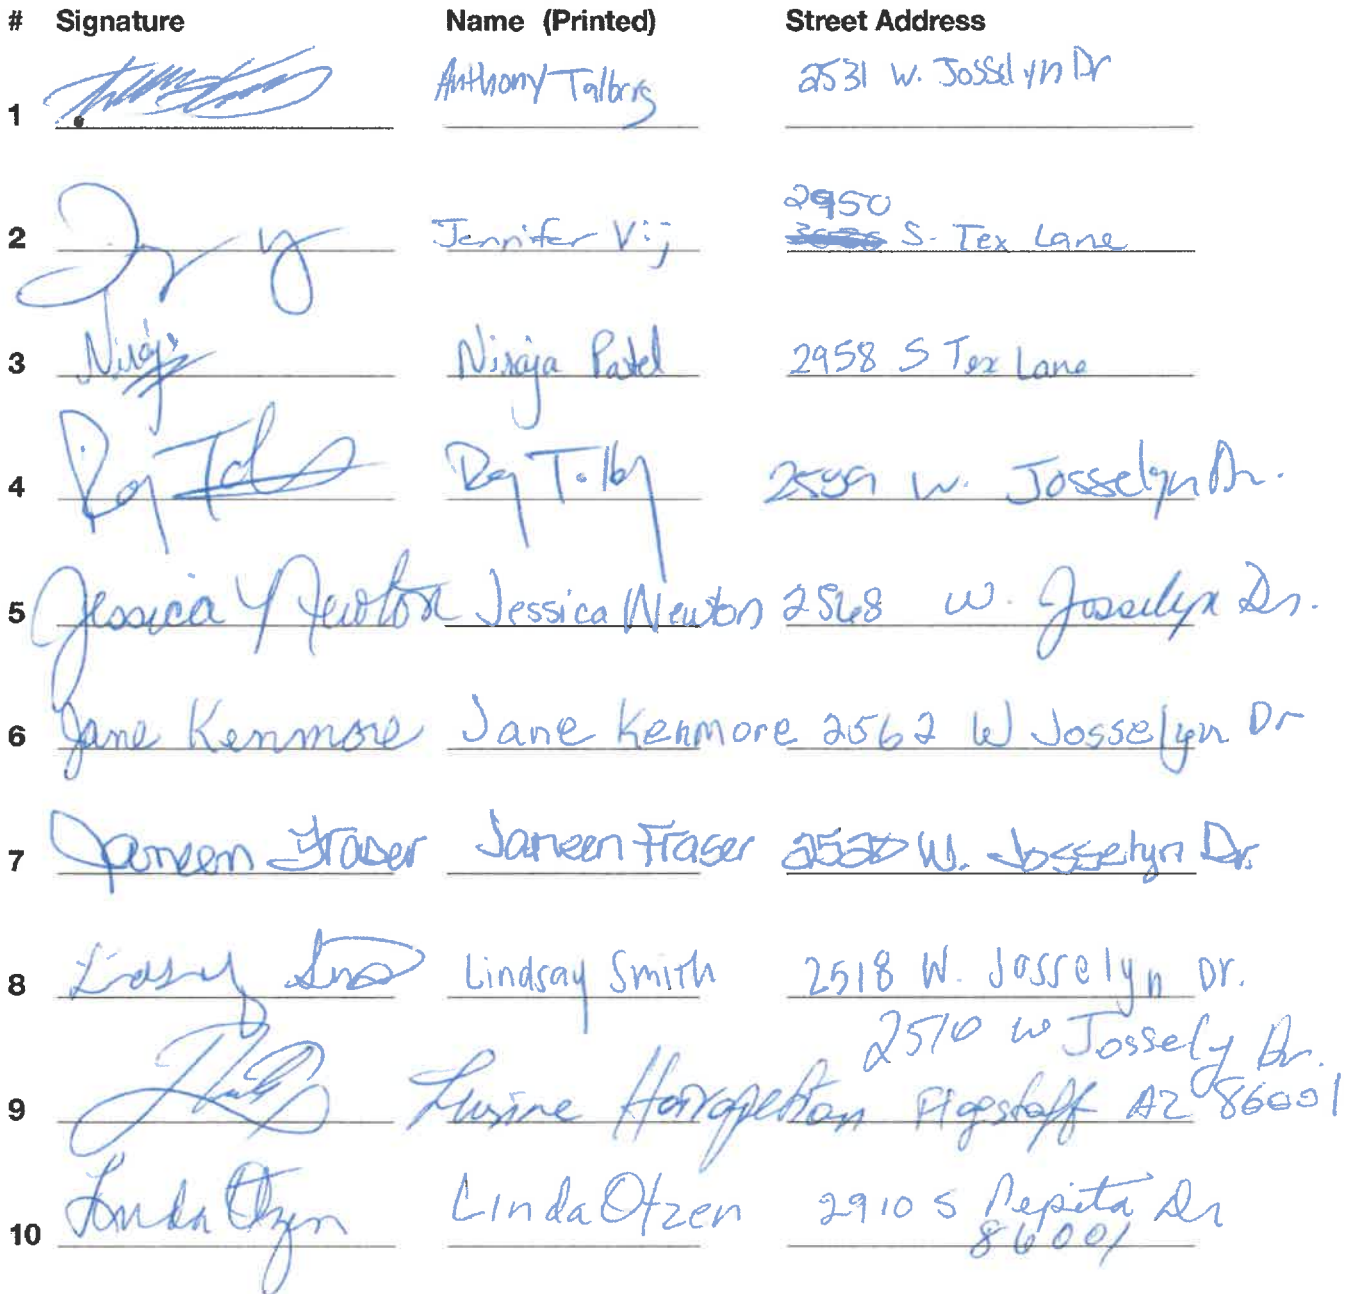 # Signature Name (Printed) Street Address
1 Anthony 2531 W. Josselyn Dr
2 Jennifer Vij 2950 S. Tex Lane
3 Niraja Niraja Patel 2958 S Tex Lane
4 Roy Roy W. Josselyn Dr.
5 Jessica Newton Jessica Newton 2568 W. Josselyn Dr.
6 Jane Kenmore Jane Kenmore 2562 W Josselyn Dr
7 Janeen Fraser Janeen Fraser W. Josselyn Dr.
8 Lindsay Smith 2518 W. Josselyn Dr.
2510 W Jossely Dr.
9 Lusine Hairapetian Flagstaff AZ 86001
10 Linda Otzen Linda Otzen 2910 S Pepita Dr
86001